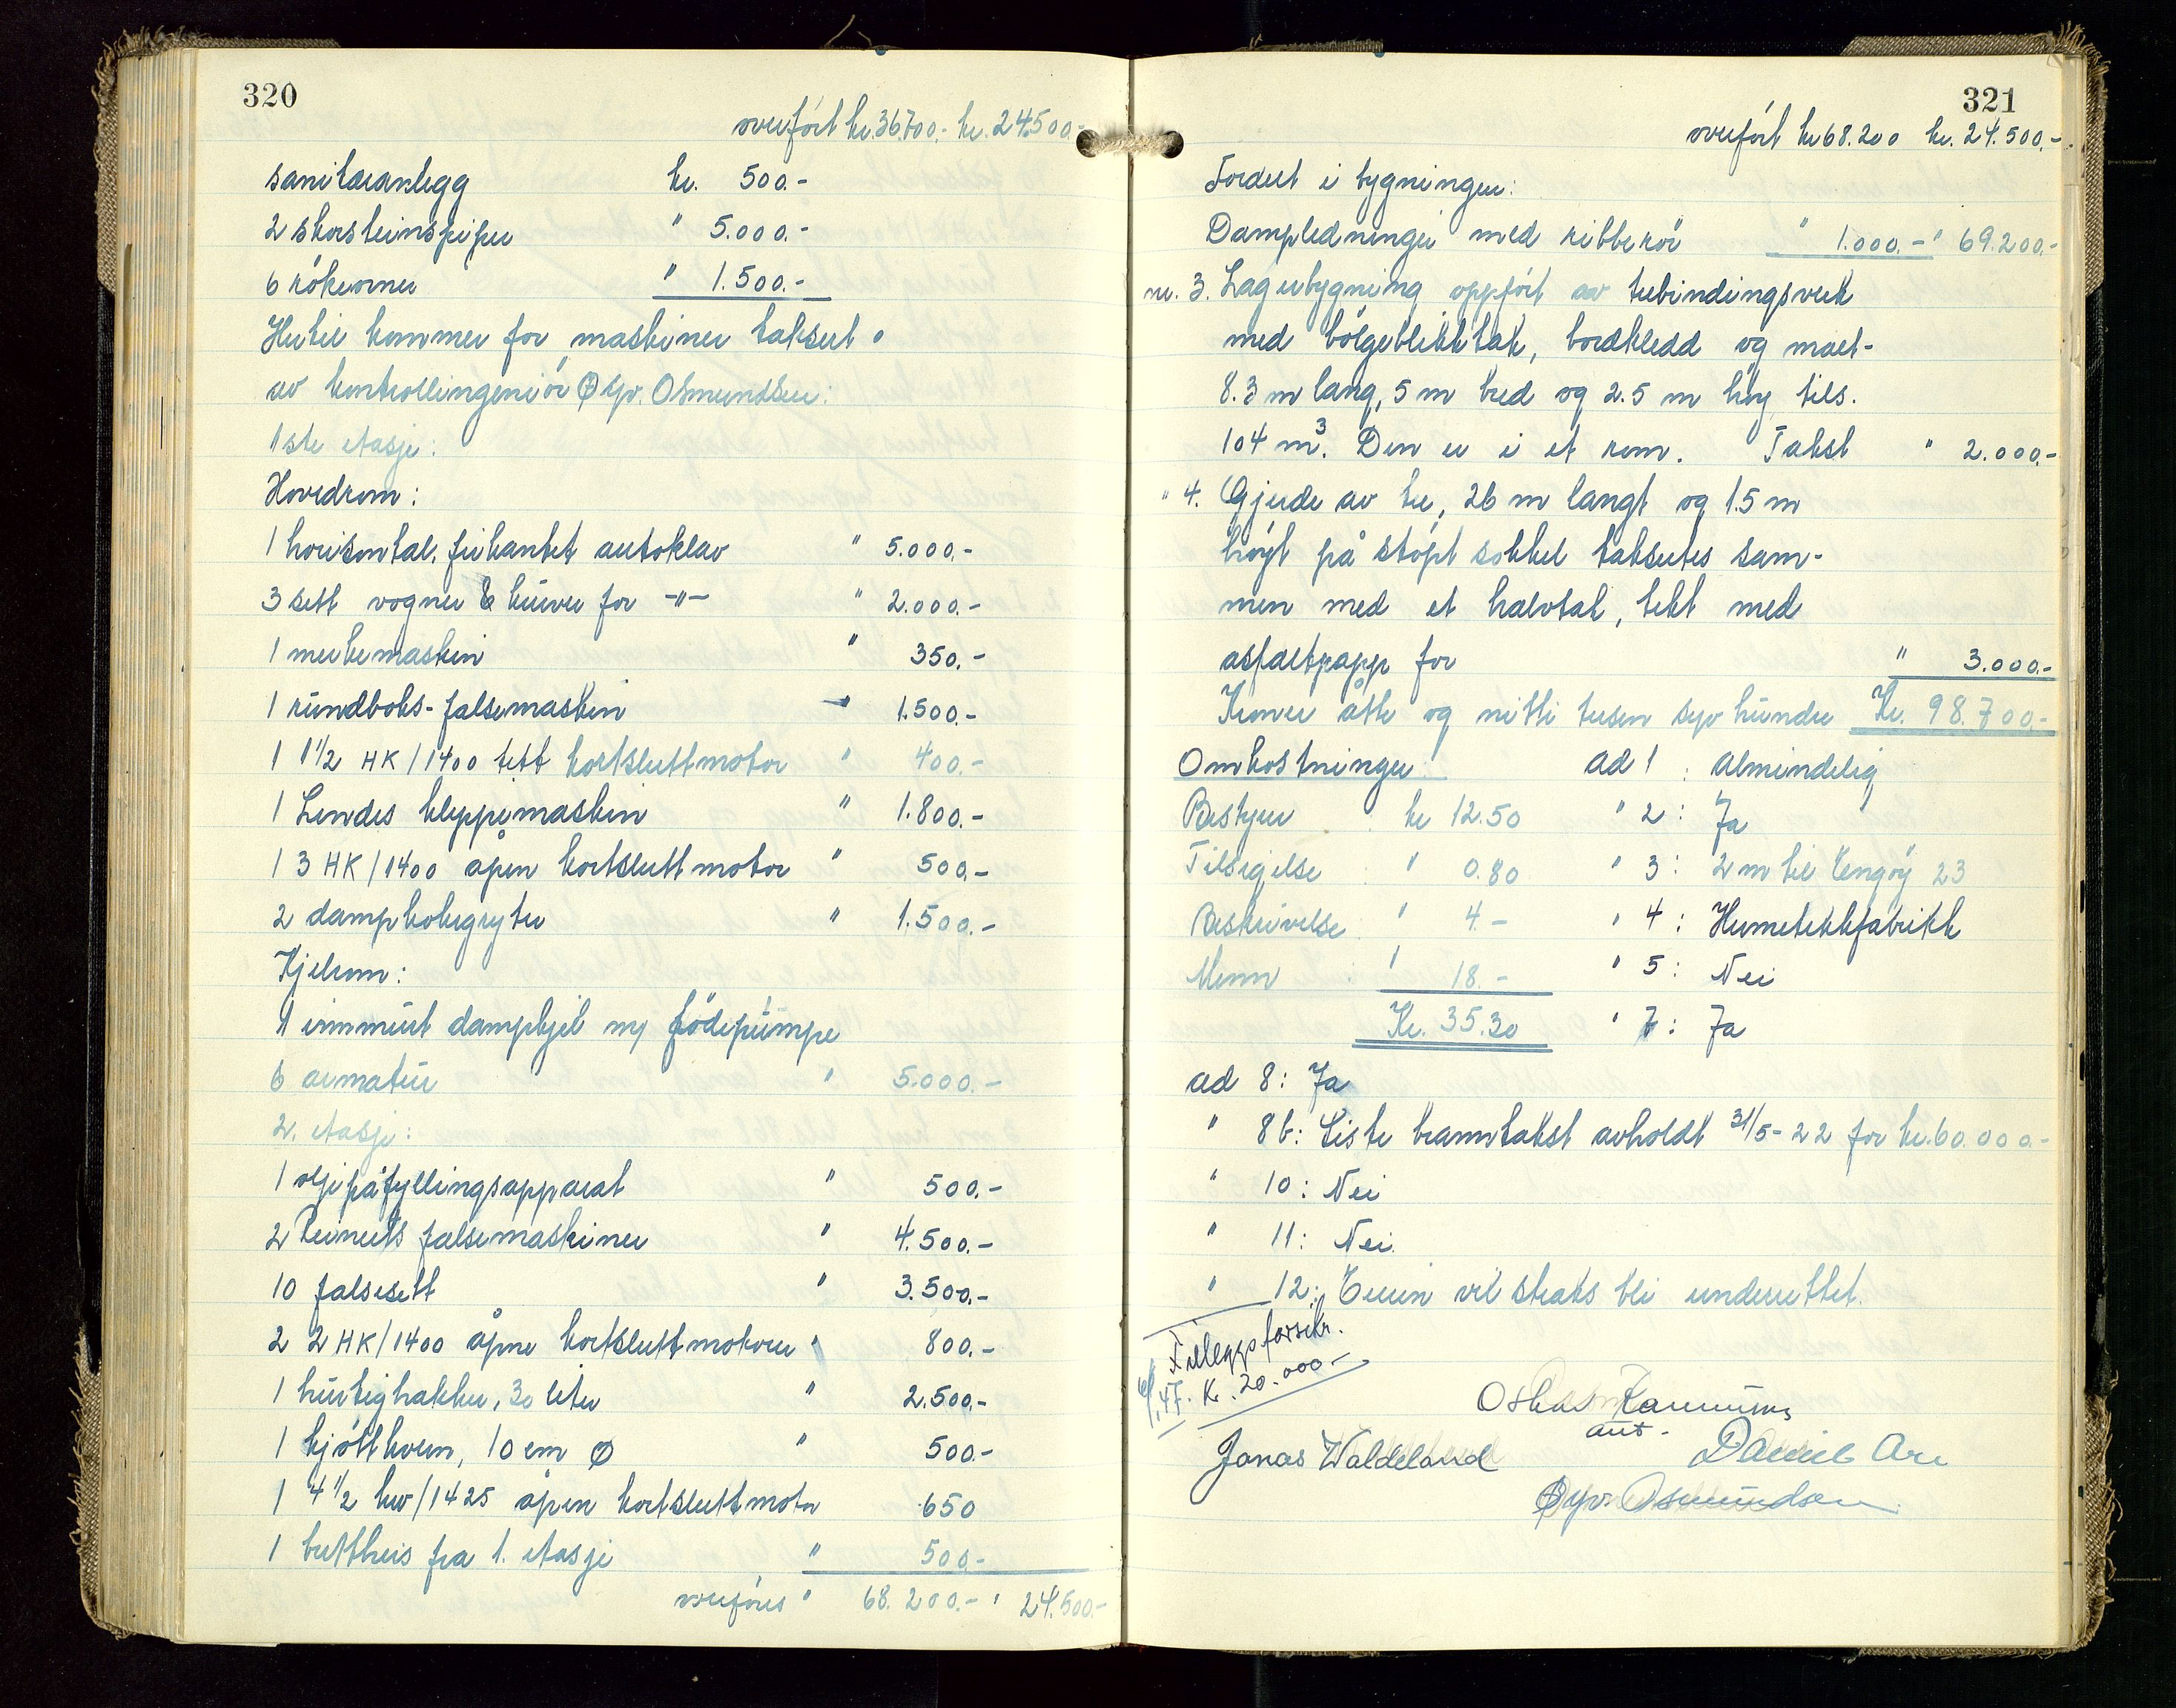 320
overført kr. 36.700.- kr. 24.500.-
sanitæranlegg kr. 500.-
2 skorsteinspiper " 5.000.-
6 rökeovner " 1.500.-
Hertil kommer for maskiner taksert
av kontrollingeniör Øyv. Osmundsen:
1ste etasje:
Hovedrom:
1 horisontal. firkantet autoklav " 5.000.-
3 sett vogner & kurver for -"- " 2.000.-
1 merkemaskin " 350.-
1 rundboks-falsemaskin " 1.500.-
1 1 1/2 HK/1400 tett kortsluttmotor " 400.-
1 Lendes kleppemaskin " 1.800.-
1 3 HK/1400 åpen kortsluttmotor " 500.-
2 dampkokegryter " 1.500.-
Kjelrom:
1 innmurt dampkjel m/ födepumpe
& armatur " 5.000.-
2. etasje:
1 oljepåfyllingsapparat " 500.-
2 Reinerts falsemaskiner " 4.500.-
10 falsesett " 3.500.-
2 2 HK/1400 åpne kortsluttmotorer " 800.-
1 hurtighakker, 30 liter " 2.500.-
1 kjöttkvern, 10 cm Ø " 500.-
1 4 1/2 kw/1425 åpen kortsluttmotor 650
1 bøttheis fra 1. etasje " 500.-
overføres " 68.200.- " 24.500.-
321
overfört kr 68.200 kr. 24.500.-
Fordelt i bygningen:
Dampledninger med ribberör " 1.000.- " 69.200.-
nr. 3. Lagerbygning oppfört av trebindingsverk
med bölgeblikktak, bordkledd og malt-
8.3 m lang, 5 m bred og 2.5 m höy tils.
104 m³. Den er i et rom. Takst " 2.000.-
" 4. Gjerde av tre, 26 m langt og 1.5 m
höyt på stöpt sokkel takseres sam-
men med et halvtak, tekt med
asfaltpapp for " 3.000.-
Kroner åtte og nitti tusen syv hundre Kr. 98.700.-
Omkostninger: ad 1: Almindelig
Bestyrer kr 12.50 " 2: Ja
Tilsigelse " 0.80 " 3: 2 m til Engöy 23
Beskrivelse " 4.- " 4: Hermetikkfabrikk
Menn " 18.- " 5: Nei
Kr. 35.30 " 7: Ja
ad 8: Ja
" 8b: Siste branntakst avholdt 31/5-22 for kr. 60.000.-
" 10: Nei
" 11: Nei.
" 12: Eieren vil straks bli underrettet.
Tilleggsforsikr.
47. K. 20.000.-
Jonas Waldeland
Daniel
Øyv. Osmundsen